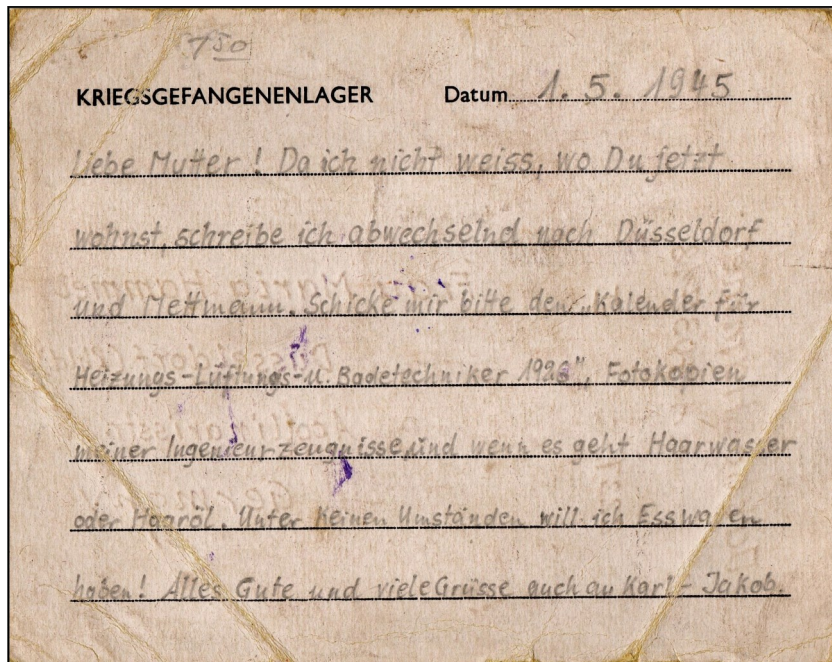 750
KRIEGSGEFANGENENLAGER Datum 1. 5. 1945
Liebe Mutter ! Da ich nicht weiss, wo Du jetzt
wohnst, schreibe ich abwechselnd nach Düsseldorf
und Mettmann. Schicke mir bitte den „Kalender für
Heizungs-Lüftungs-u. Badetechniker 1926", Fotokopien
meiner Ingenieurzeugnisse und wenn es geht Haarwasser
oder Haaröl. Unter keinen Umständen will ich Esswaren
haben! Alles Gute und viele Grüsse auch an Karl - Jakob.